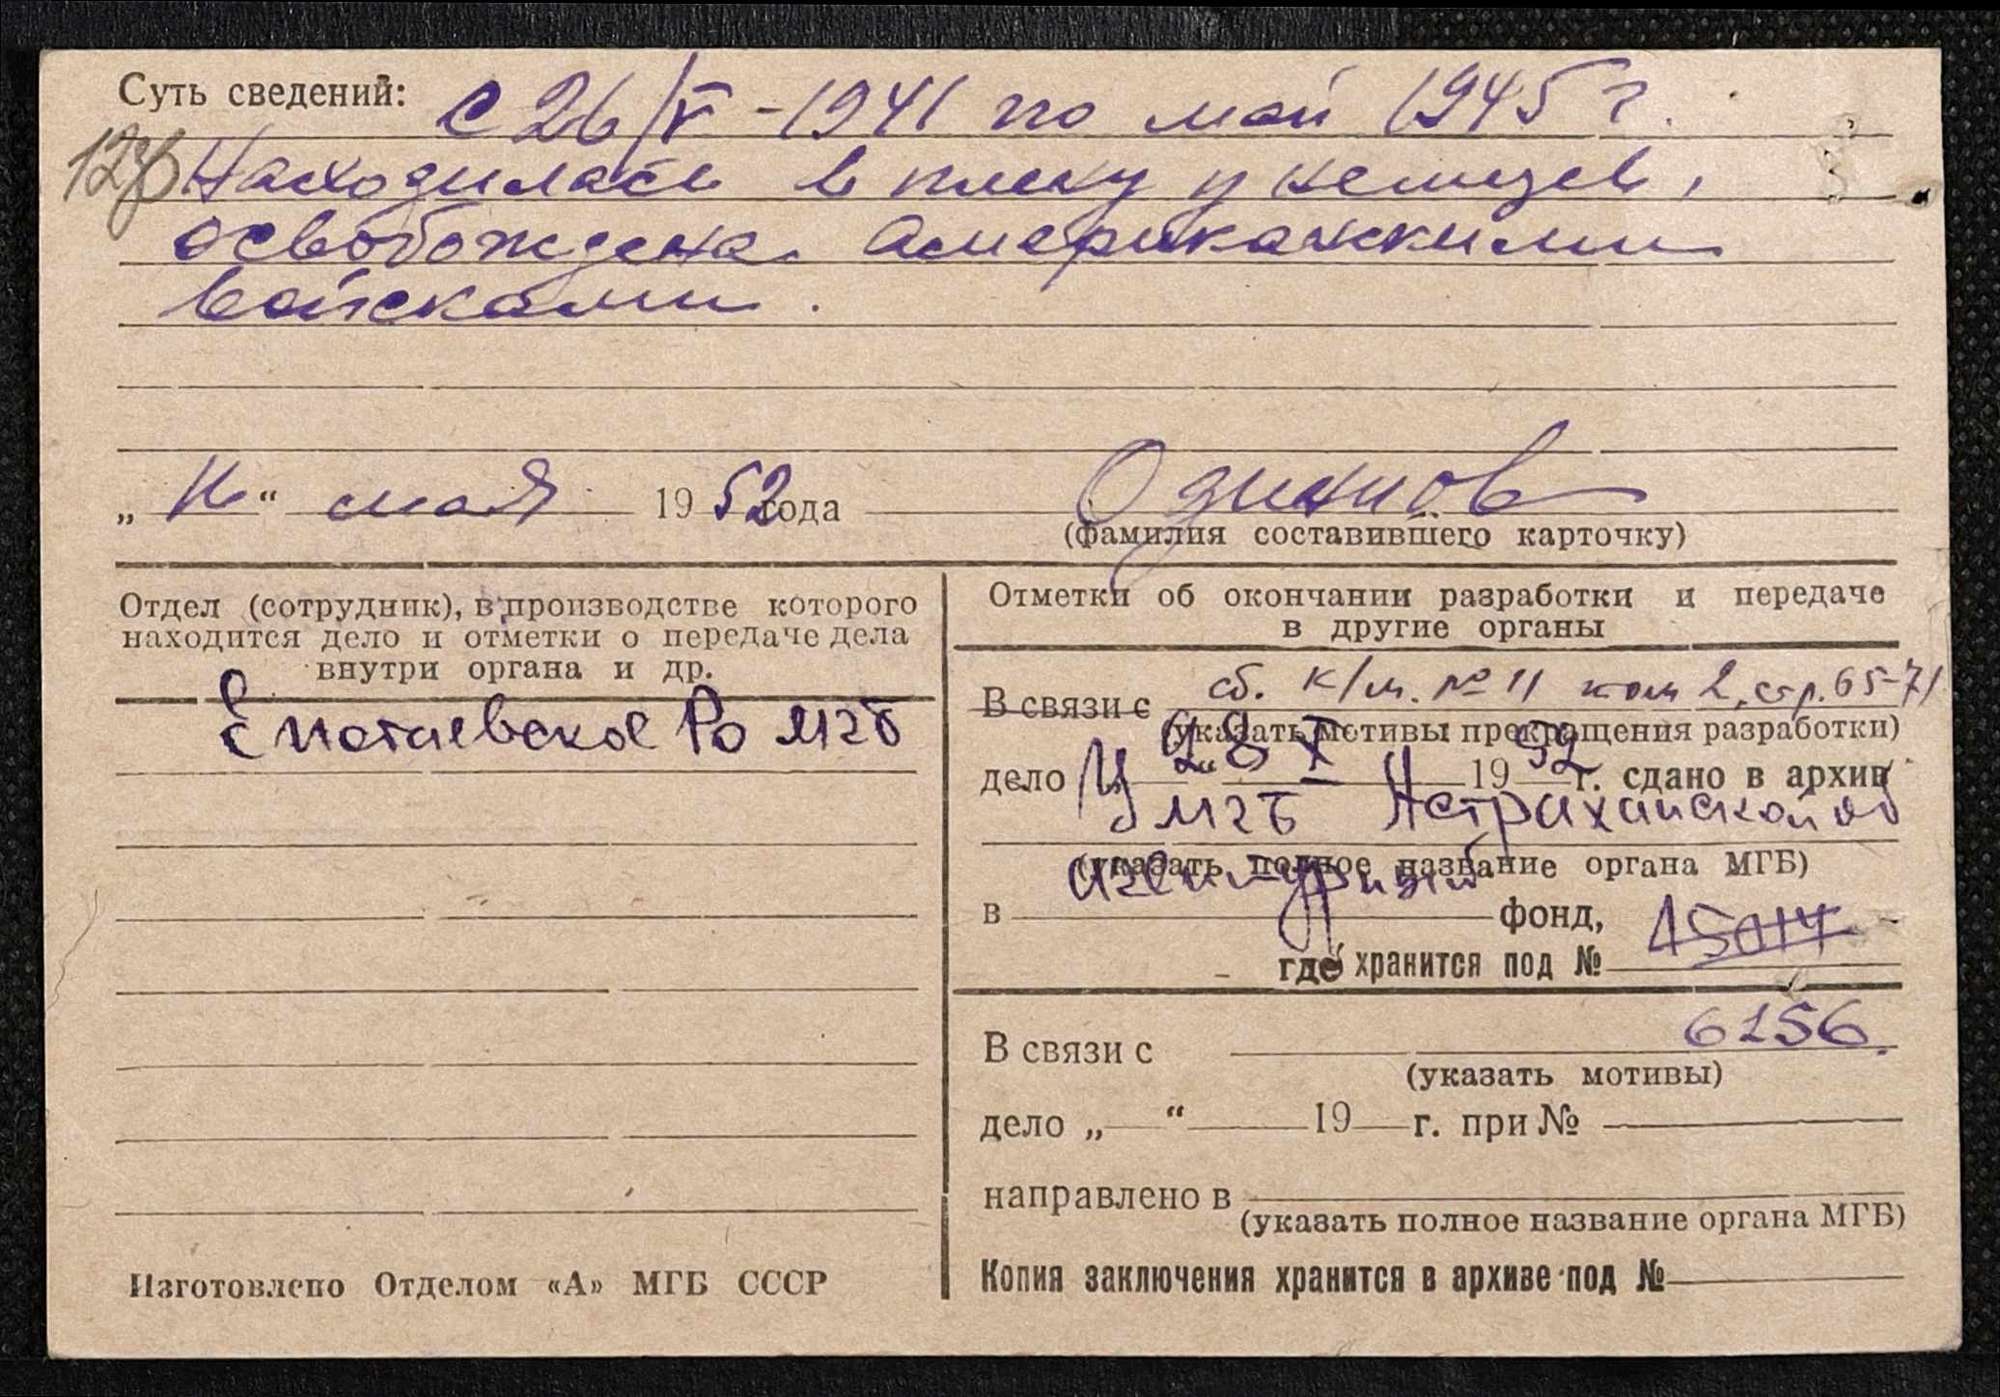 Суть сведений: С 26/V - 1941 по май 1945 г.
Находилась в плену у немцев,
освобождена американскими
войсками.
„ " мая 1952 года
(фамилия составившего карточку)
Отдел (сотрудник), в производстве которого
находится дело и отметки о передаче дела
внутри органа и др.
Енотаевское Ро МГБ
Отметки об окончании разработки и передаче
в другие органы
В связи с сб. к/м. № 11 том 2, стр. 65-71
(указать мотивы прекращения разработки)
дело „28" X 1952 г. сдано в архив
УМГБ Астраханской об
(указать полное название органа МГБ)
в агентурный фонд,
где хранится под № 15014
6256.
В связи с
(указать мотивы)
дело „ " 19 г. при №
направлено в
(указать полное название органа МГБ)
Изготовлено Отделом «А» МГБ СССР
Копия заключения хранится в архиве под №